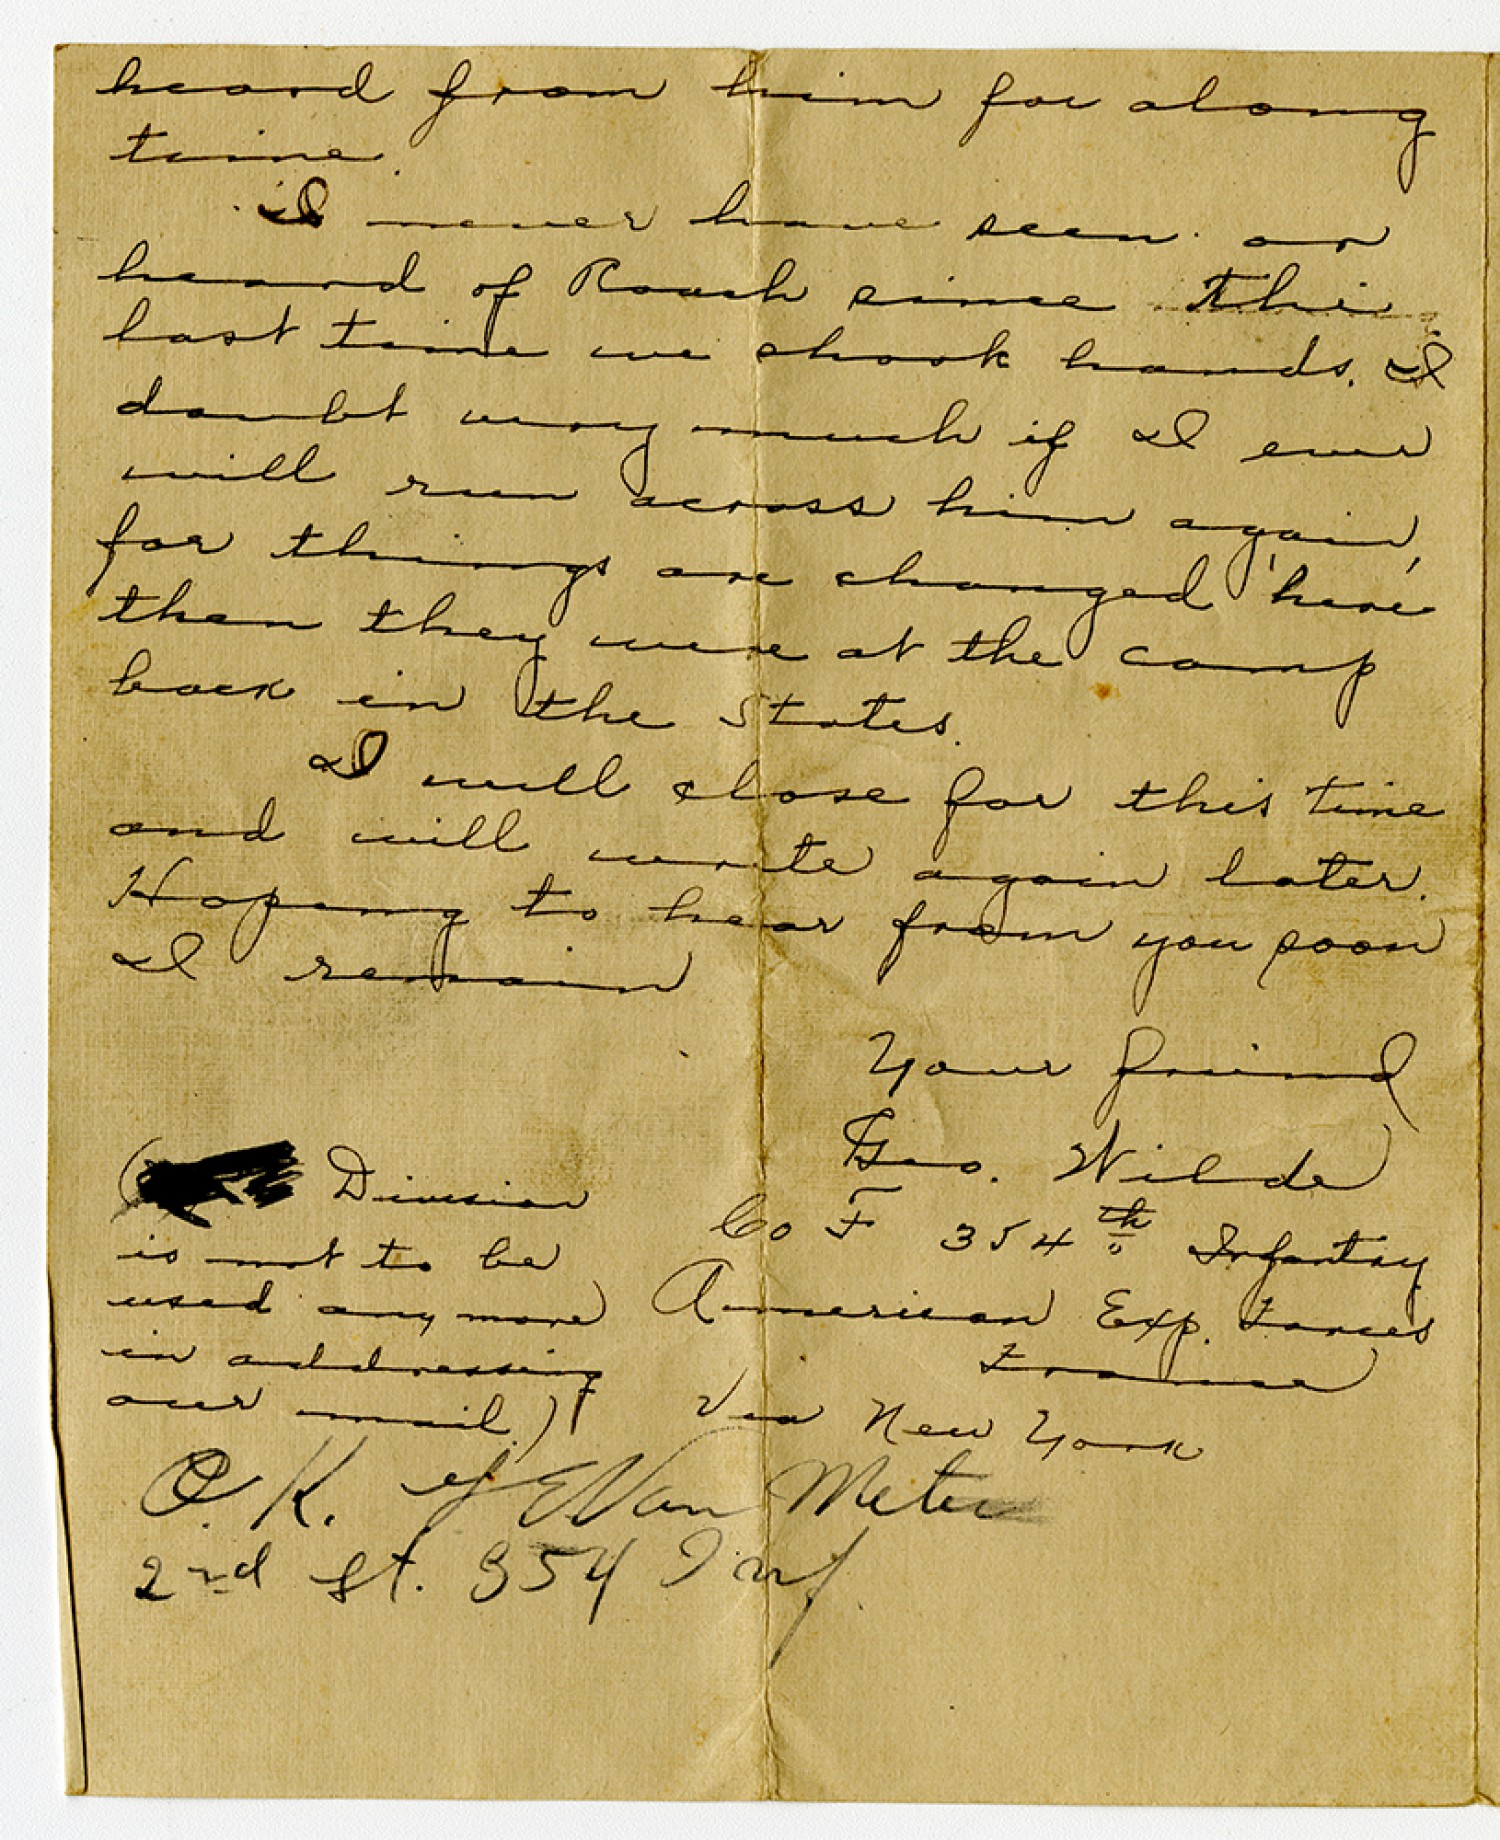 heard from him for along
time.
I never have seen or
heard of Roach since the
last time we shook hands. I
doubt very much if I ever
will run across him again,
for things are changed here
then they were at the camp
back in the States.
I will close for this time
and will write again later.
Hoping to hear from you soon
I remain
Your friend
Geo. Wilde
Co F 354th Infantry
American Exp. Forces
France
Via New York
( Division
is not to be
used any more
in addressing
our mail.)
O.K. Van Meter
2nd Lt. 354 Inf.